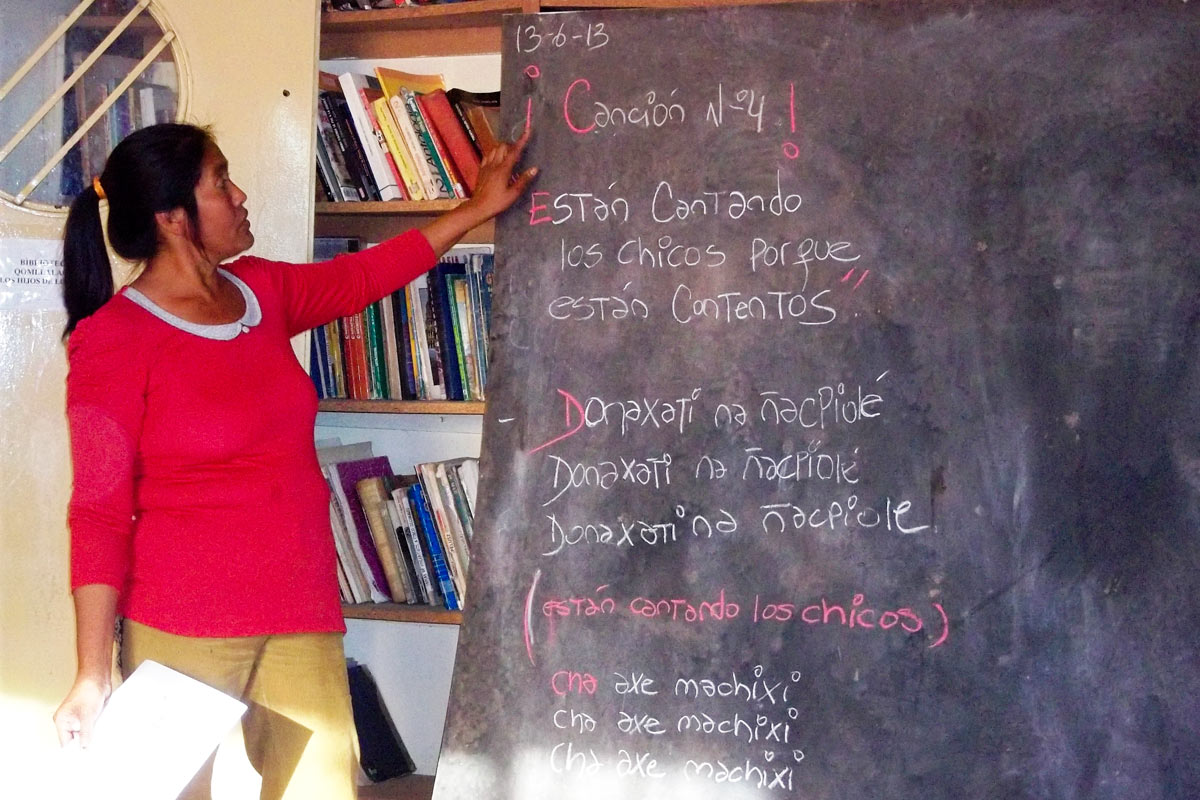 13-6-13
¡Canción Nº4!
Están Cantando
los chicos porque
están Contentos".
- Donaxati na ñacpiolé
Donaxati na ñacpiolé
Donaxati na ñacpiole
(están cantando los chicos)
cha axe machixi
cha axe machixi
cha axe machixi